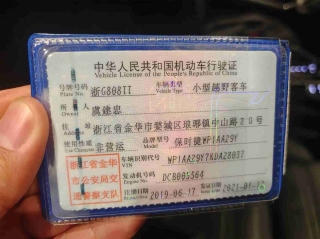 中华人民共和国机动车行驶证
Vehicle License of the People's Republic of China
号牌号码 浙G808TT 车辆类型 小型越野客车
Plate No. Vehicle Type
所有人 虞建忠
Owner
住址 浙江省金华市婺城区琅琊镇中山路20号
Address
使用性质 非营运 品牌型号 保时捷WP1AA29Y
浙江省金华市公安局交通警察支队
车辆识别代号 WP1AA29Y7KDA28037
VIN
发动机号码 DCB005564
Engine No.
注册日期 2019-06-17 发证日期